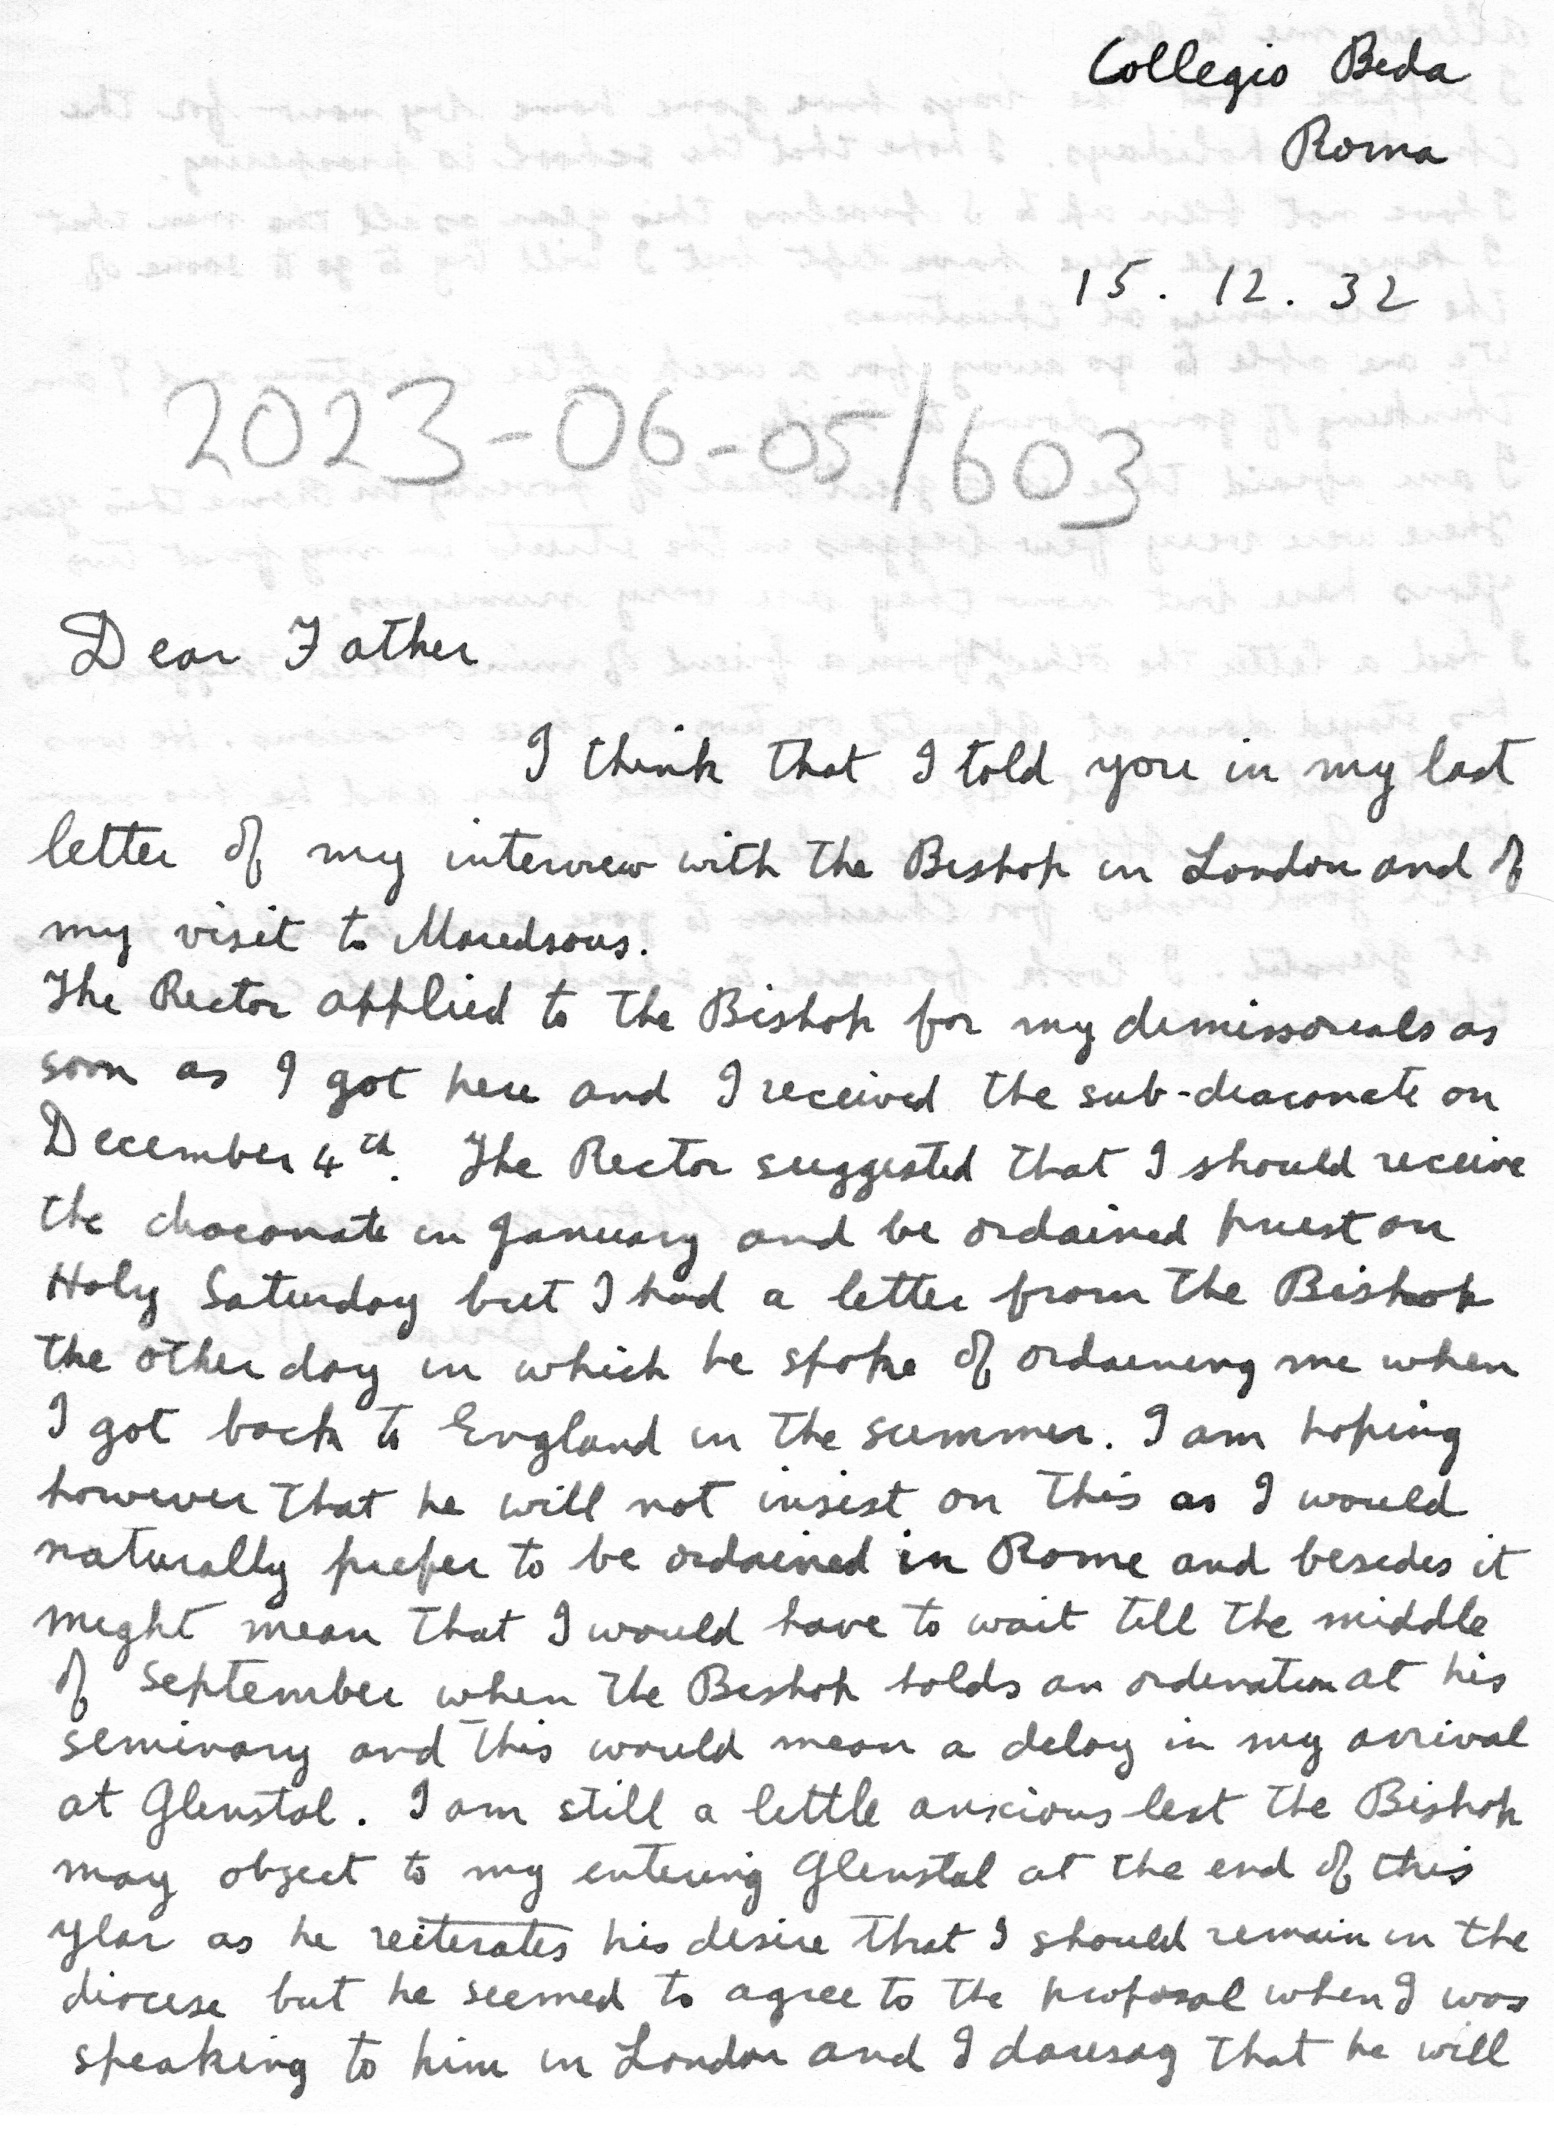 Collegio Beda
Roma
15. 12. 32
2023-06-05/603
Dear Father
I think that I told you in my last
letter of my interview with the Bishop in London and of
my visit to Maredsous.
The Rector applied to the Bishop for my dimissorials as
soon as I got here and I received the sub-diaconate on
December 4th. The Rector suggested that I should receive
the diaconate in January and be ordained priest on
Holy Saturday but I had a letter from the Bishop
the other day in which he spoke of ordaining me when
I got back to England in the summer. I am hoping
however that he will not insist on this as I would
naturally prefer to be ordained in Rome and besides it
might mean that I would have to wait till the middle
of September when the Bishop holds an ordination at his
seminary and this would mean a delay in my arrival
at Glenstal. I am still a little anxious lest the Bishop
may object to my entering Glenstal at the end of this
year as he reiterates his desire that I should remain in the
diocese but he seemed to agree to the proposal when I was
speaking to him in London and I daresay that he will